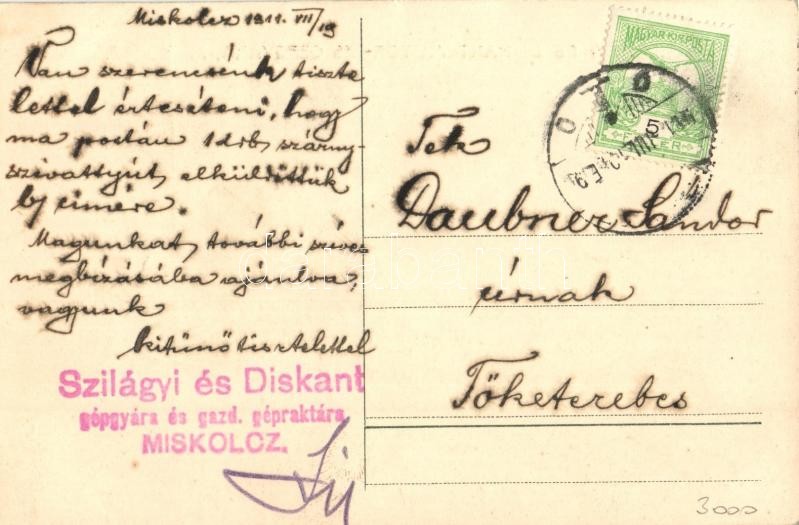 Miskolcz 1911. VII/19
Van szerencsénk tiszte
lettel értesíteni, hogy
ma postán 1 drb. szárny-
szivattyút elküldöttük
b) címére.
Magunkat, további szíves
megbízásába ajánlva,
vagyunk
kitünő tisztelettel
Szilágyi és Diskant
gépgyára és gazd. gépraktára
MISKOLCZ.
MAGYAR KIR. POSTA
5
FILLER
Tek
Daubner Sandor
úrnak
Tőketerebes
3000